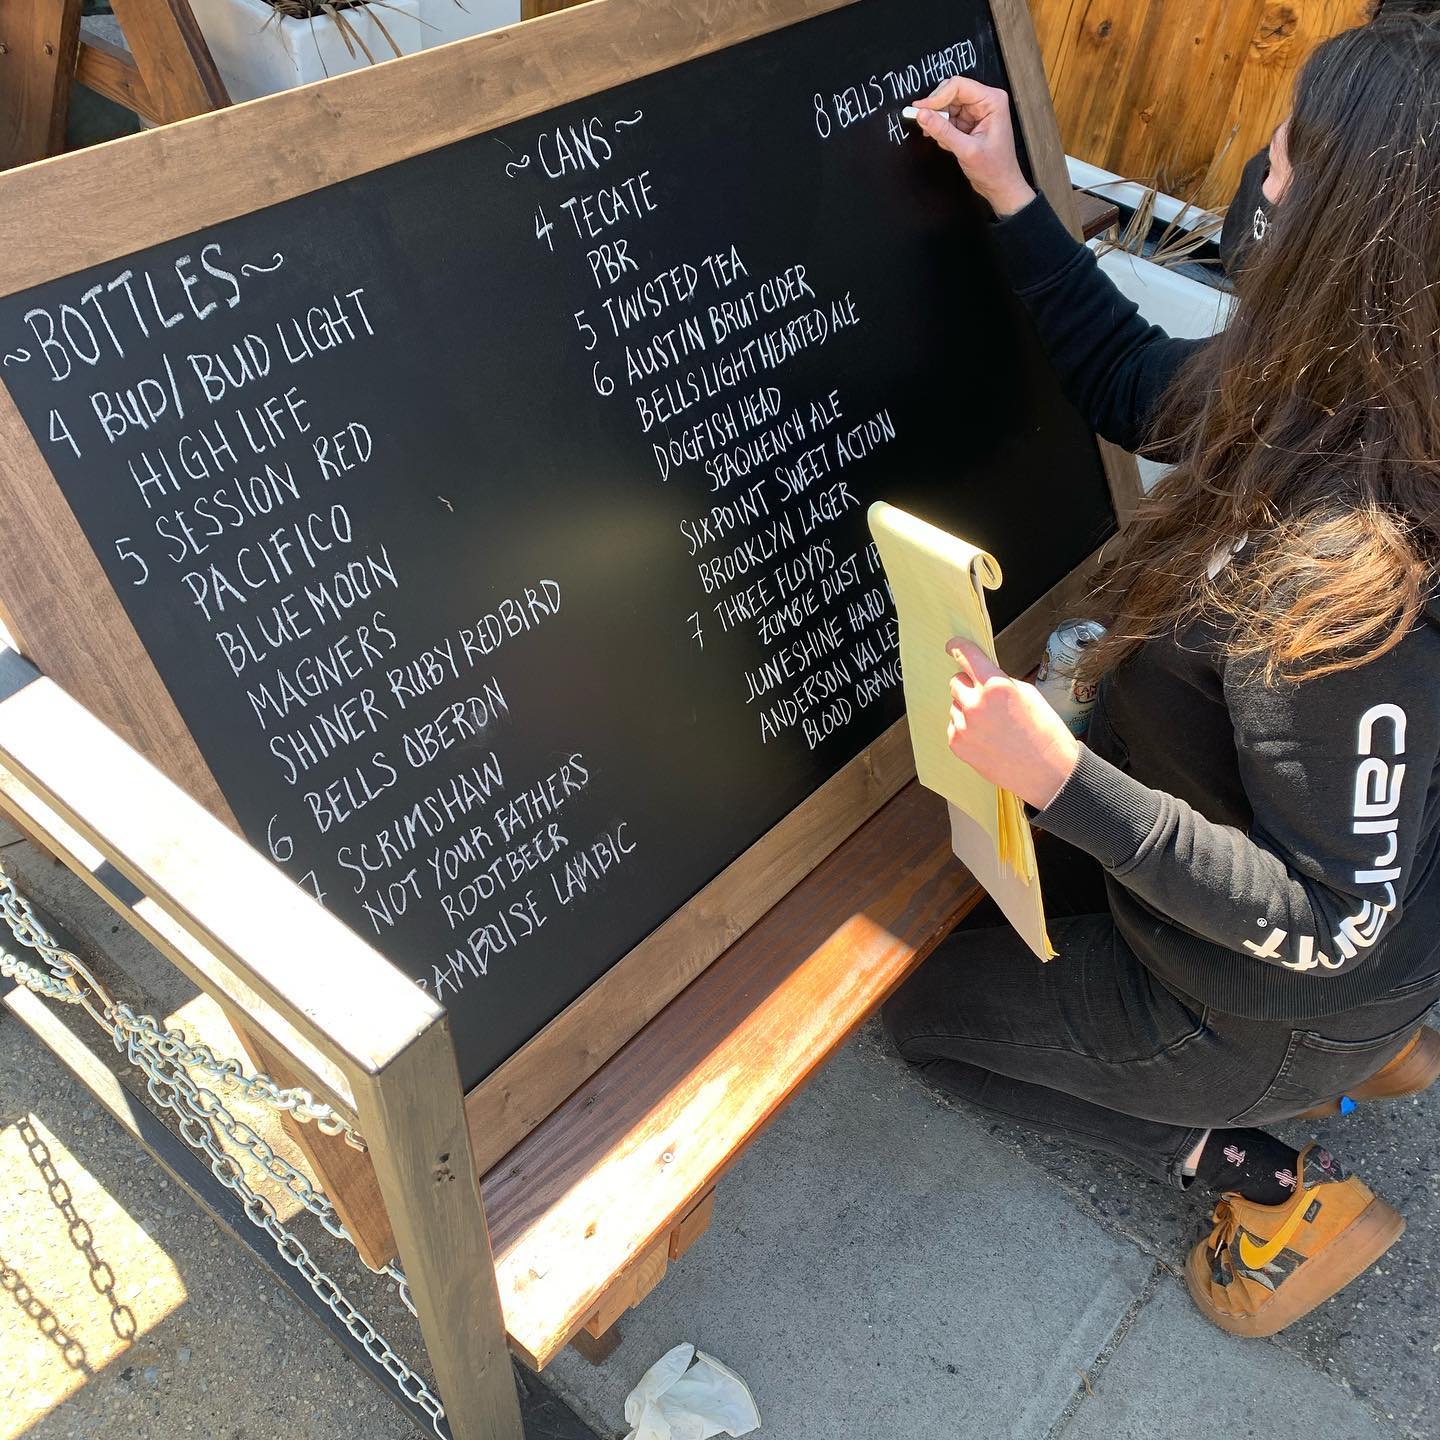 ~BOTTLES~
4 BUD/ BUD LIGHT
HIGH LIFE
5 SESSION RED
PACIFICO
BLUE MOON
MAGNERS
SHINER RUBY REDBIRD
6 BELLS OBERON
7 SCRIMSHAW
NOT YOUR FATHERS
ROOTBEER
LAMBIC
~CANS~
4 TECATE
PBR
5 TWISTED TEA
6 AUSTIN BRUT CIDER
BELLS LIGHTHEARTED ALE
DOGFISH HEAD
SEAQUENCH ALE
SIXPOINT SWEET ACTION
BROOKLYN LAGER
7 THREE FLOYDS
ZOMBIE DUST
JUNESHINE HARD
ANDERSON VALLEY
BLOOD ORANG
8 BELLS TWO HEARTED
AL
carhartt®